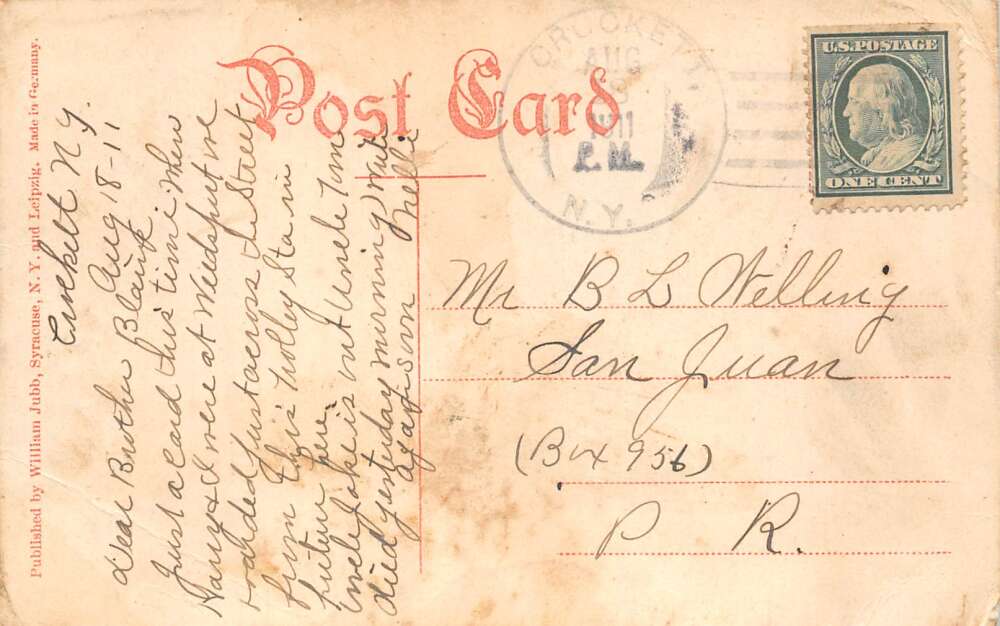 Post Card
CROCKETT
AUG
1911
P.M.
N.Y.
U.S. POSTAGE
ONE CENT
Published by William Jubb, Syracuse, N. Y. and Leipzig. Made in Germany.
Crockett N.Y.
Aug 18-11
Dear Brother Blaine
Just a card this time. When
Harry & I were at Weedsport we
rodded just across the street
from this Holley Sta in
picture here.
Uncle Jake is but Uncle Tome
died yesterday morning write
again soon Nelli
Mr B L Welling
San Juan
(Box 956)
P. R.